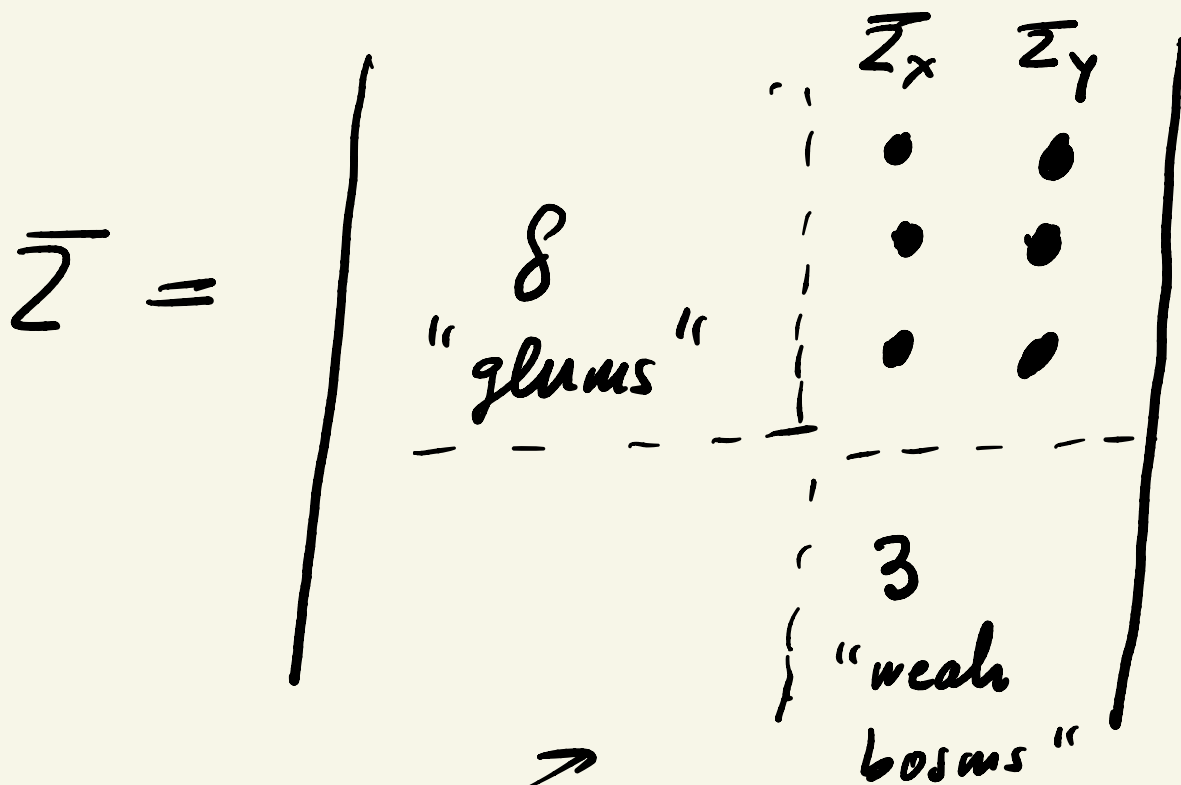 Σ̅x Σ̅y
Σ̅ =
8
"gluons"
3
"weak
bosons"